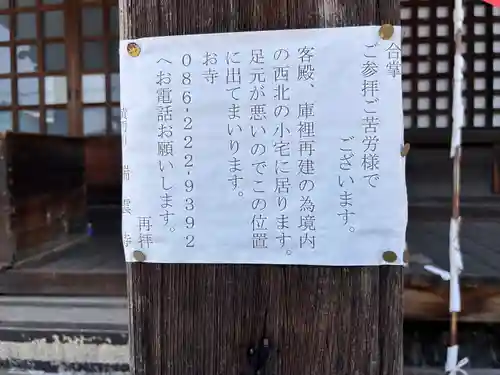 合掌
ご参拝ご苦労様で
ございます。
客殿、庫裡再建の為境内
の西北の小宅に居ります。
足元が悪いのでこの位置
に出てまいります。
お寺
086-222-9392
へお電話お願いします。
再拝
雲寺